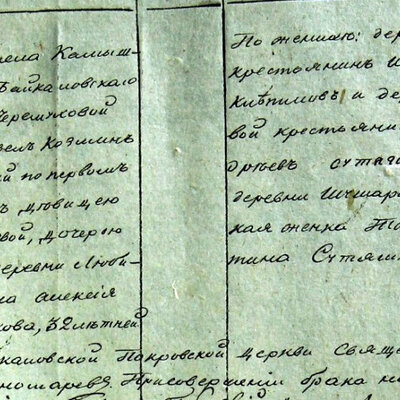 села Камыш-
Байкаловскаго
Черемуховой
вел Козминъ
ий по первомъ
ъ девицею
вой, дочерю
деревни Люби-
на алексiя
кова, 32 летней
По женихе: дер
крестоянинъ И
Клепиковъ и де
вой крестояни
дреевъ сутяги
деревни Ишимар
кая женка Та
тина Сутяги
каловской Покровской церкви Свяще
номаревъ. При совершении брака на